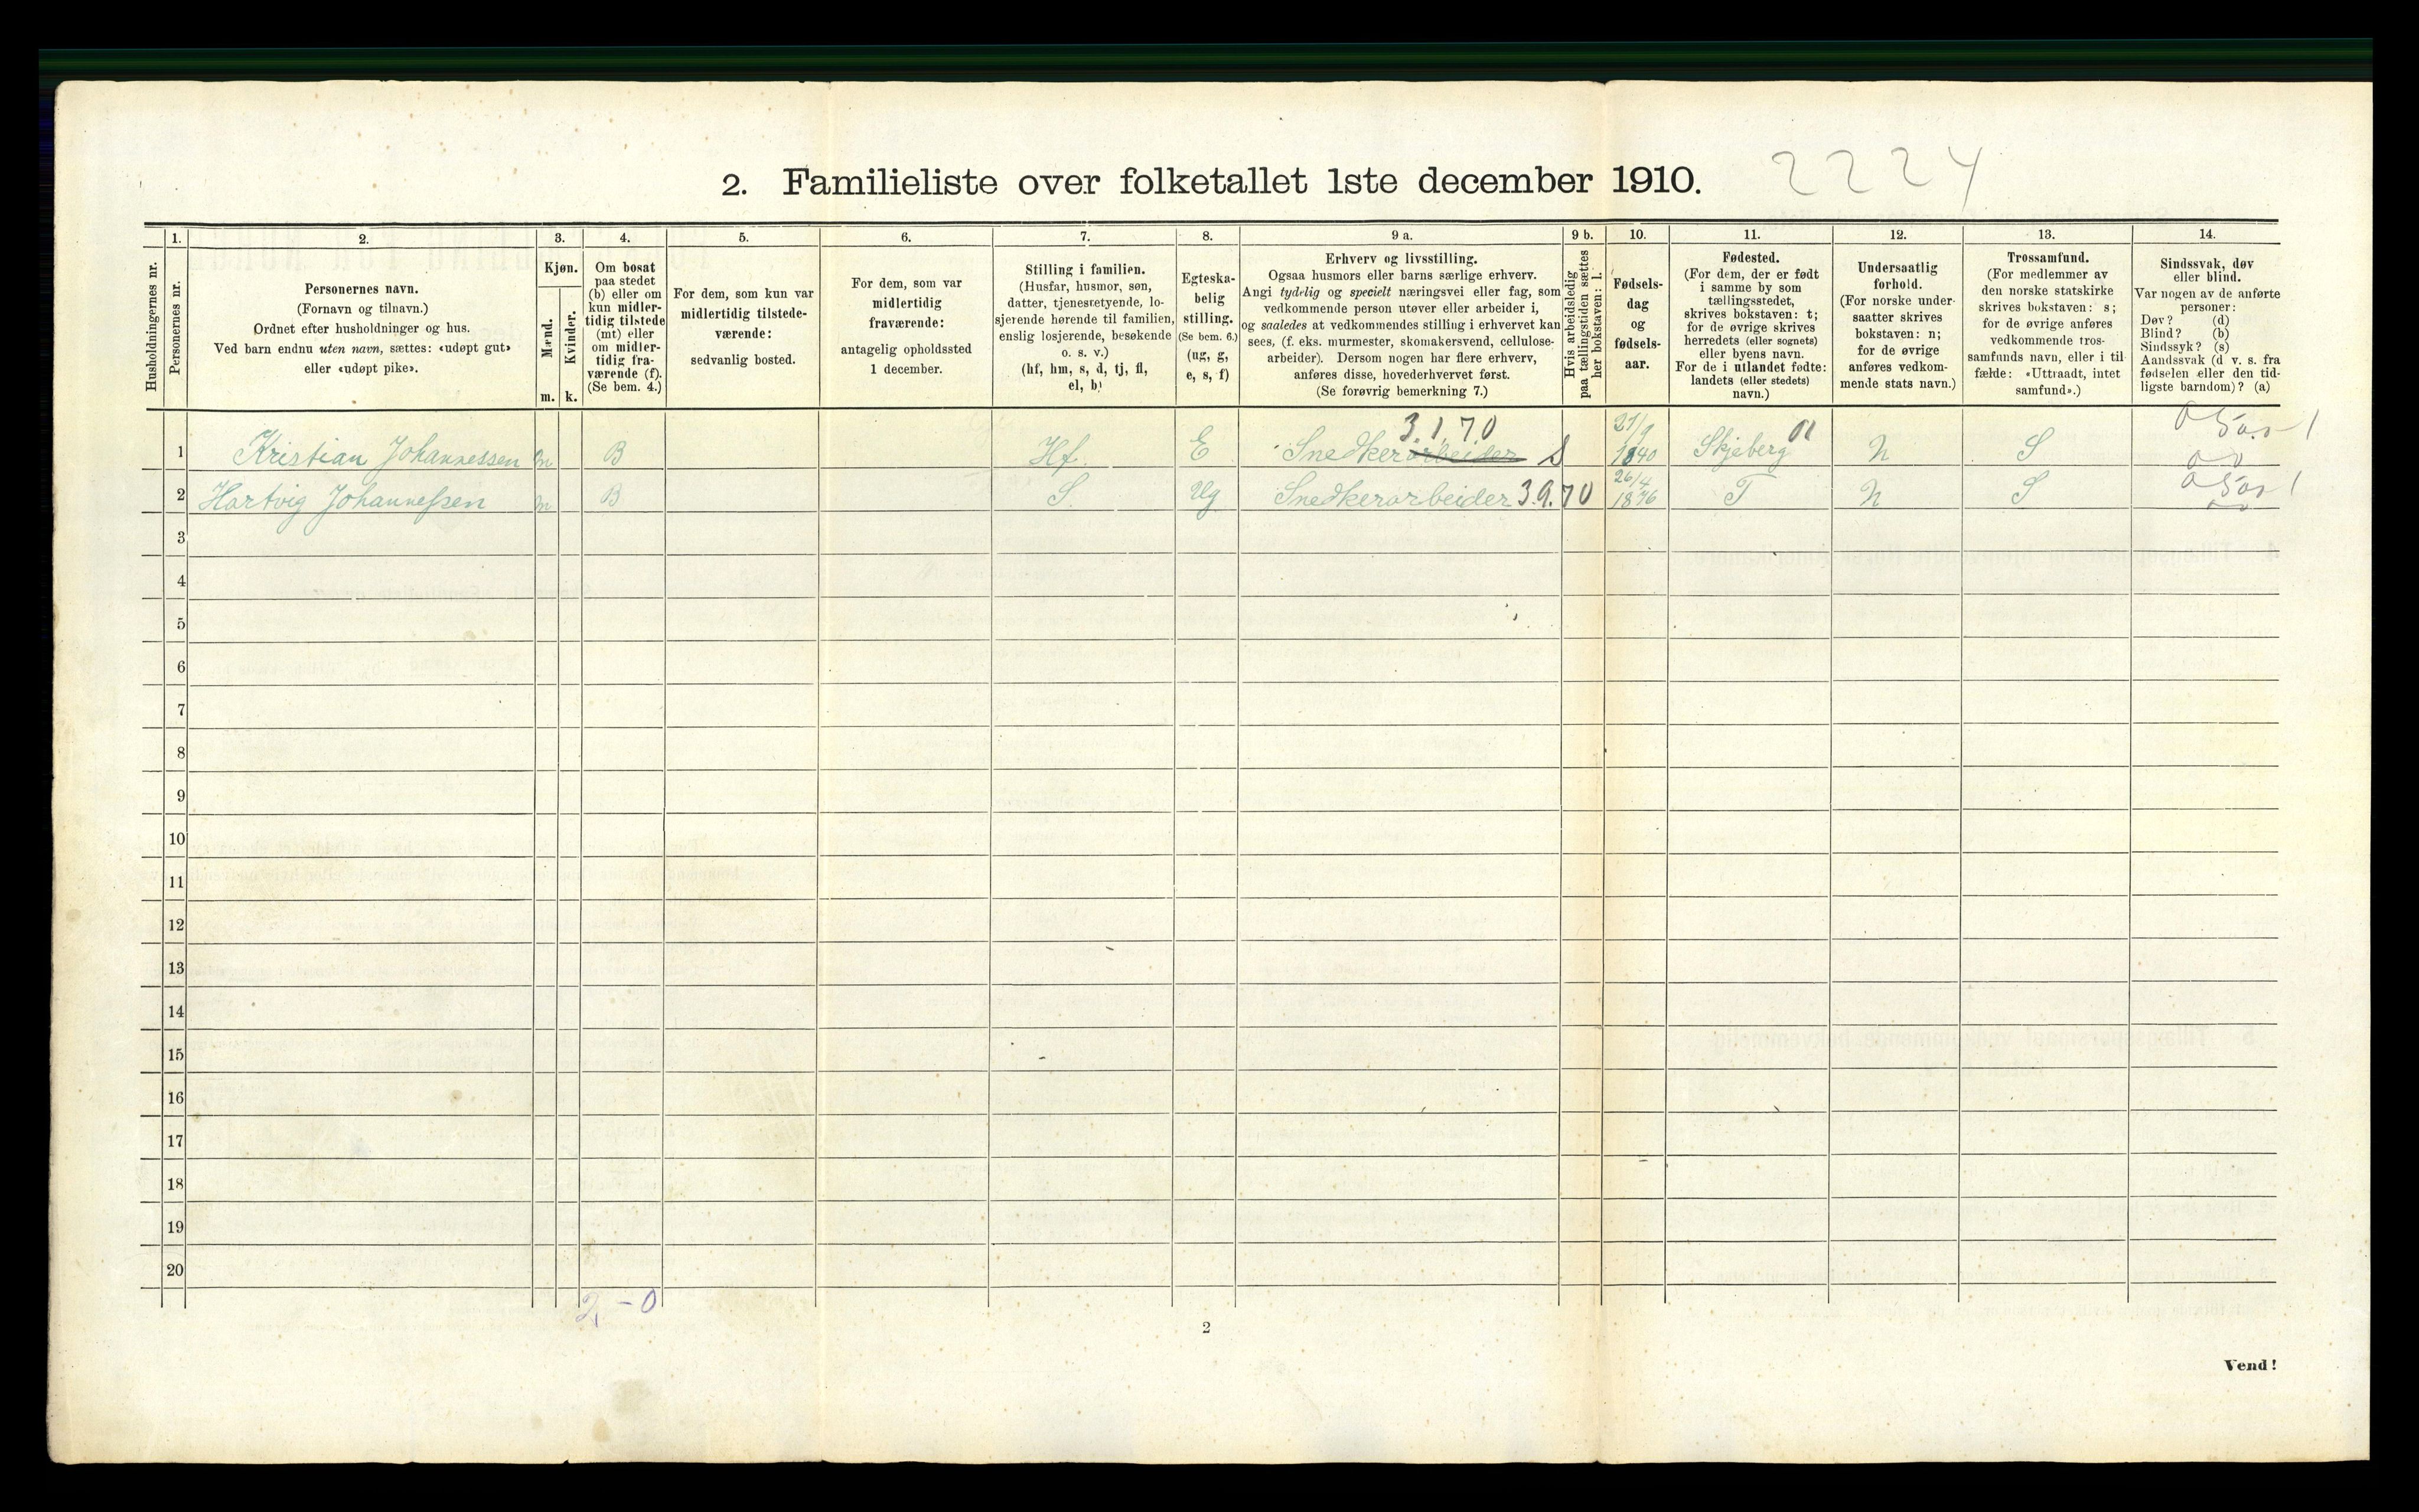 2. Familieliste over folketallet 1ste december 1910. 2224
Husholdningernes nr.
1.
Personernes nr.
2.
Personernes navn.
(Fornavn og tilnavn.)
Ordnet efter husholdninger og hus.
Ved barn endnu uten navn, sættes: «udøpt gut»
eller «udøpt pike».
3.
Kjøn.
Mænd.
m.
Kvinder.
k.
4.
Om bosat
paa stedet
(b) eller om
kun midler-
tidig tilstede
(mt) eller
om midler-
tidig fra-
værende (f).
(Se bem. 4.)
5.
For dem, som kun var
midlertidig tilstede-
værende:
sedvanlig bosted.
6.
For dem, som var
midlertidig
fraværende:
antagelig opholdssted
1 december.
7.
Stilling i familien.
(Husfar, husmor, søn,
datter, tjenestetyende, lo-
sjerende hørende til familien,
enslig losjerende, besøkende
o. s. v.)
(hf, hm, s, d, tj, fl,
el, b)
8.
Egteska-
belig
stilling.
(Se bem. 6.)
(ug, g,
e, s, f)
9 a.
Erhverv og livsstilling.
Ogsaa husmors eller barns særlige erhverv.
Angi tydelig og specielt næringsvei eller fag, som
vedkommende person utøver eller arbeider i,
og saaledes at vedkommendes stilling i erhvervet kan
sees, (f. eks. murmester, skomakersvend, cellulose-
arbeider). Dersom nogen har flere erhverv,
anføres disse, hovederhvervet først.
(Se forøvrig bemerkning 7.)
9 b.
Hvis arbeidsledig
paa tællingstiden sættes
her bokstaven: l.
10.
Fødsels-
dag
og
fødsels-
aar.
11.
Fødested.
(For dem, der er født
i samme by som
tællingsstedet,
skrives bokstaven: t;
for de øvrige skrives
herredets (eller sognets)
eller byens navn.
For de i utlandet fødte:
landets (eller stedets)
navn.)
12.
Undersaatlig
forhold.
(For norske under-
saatter skrives
bokstaven: n;
for de øvrige
anføres vedkom-
mende stats navn.)
13.
Trossamfund.
(For medlemmer av
den norske statskirke
skrives bokstaven: s;
for de øvrige anføres
vedkommende tros-
samfunds navn, eller i til-
fælde: «Uttraadt, intet
samfund».)
14.
Sindssvak, døv
eller blind.
Var nogen av de anførte
personer:
Døv? (d)
Blind? (b)
Sindssyk? (s)
Aandssvak (d. v. s. fra
fødselen eller den tid-
ligste barndom)? (a)
3.1.70
1 Kristian Johannessen m B Hf. E Snedkerarbeider S 27/9 1840 Skjeberg 01 N S
2 Hartvig Johannessen m B S. Ug Snedkerarbeider 3.9.70 26/4 1876 T N S
3
4
5
6
7
8
9
10
11
12
13
14
15
16
17
18
19
20
2 - 0
2
Vend!